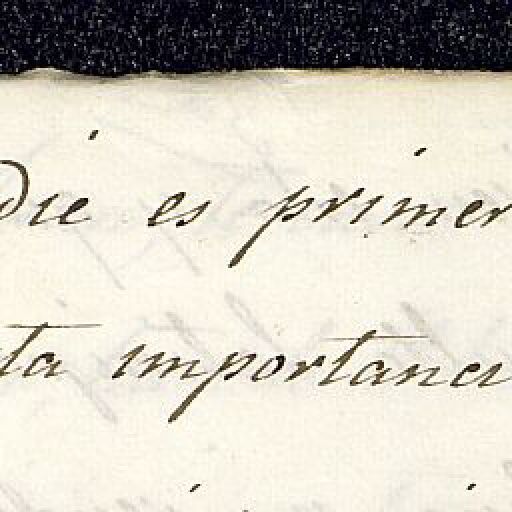 die es primer
ta importanci